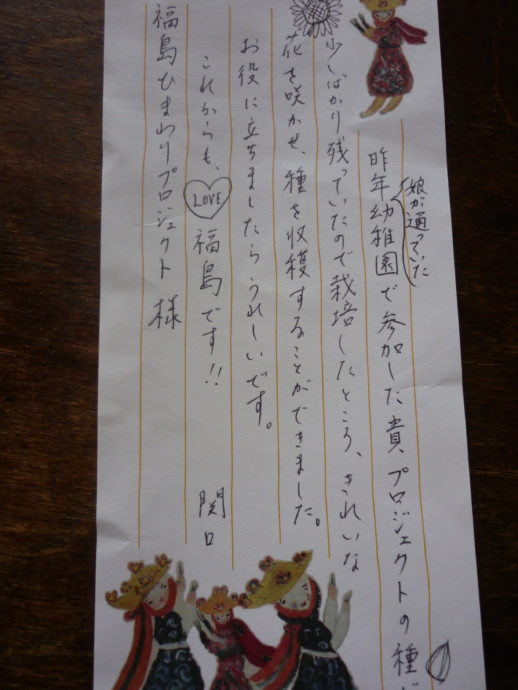 娘が通っていた
昨年幼稚園で参加した貴プロジェクトの種が
少しばかり残っていたので栽培したところ、きれいな
花を咲かせ、種を収穫することができました。
お役に立ちましたらうれしいです。
これからも、LOVE福島です!!
関口
福島ひまわりプロジェクト 様